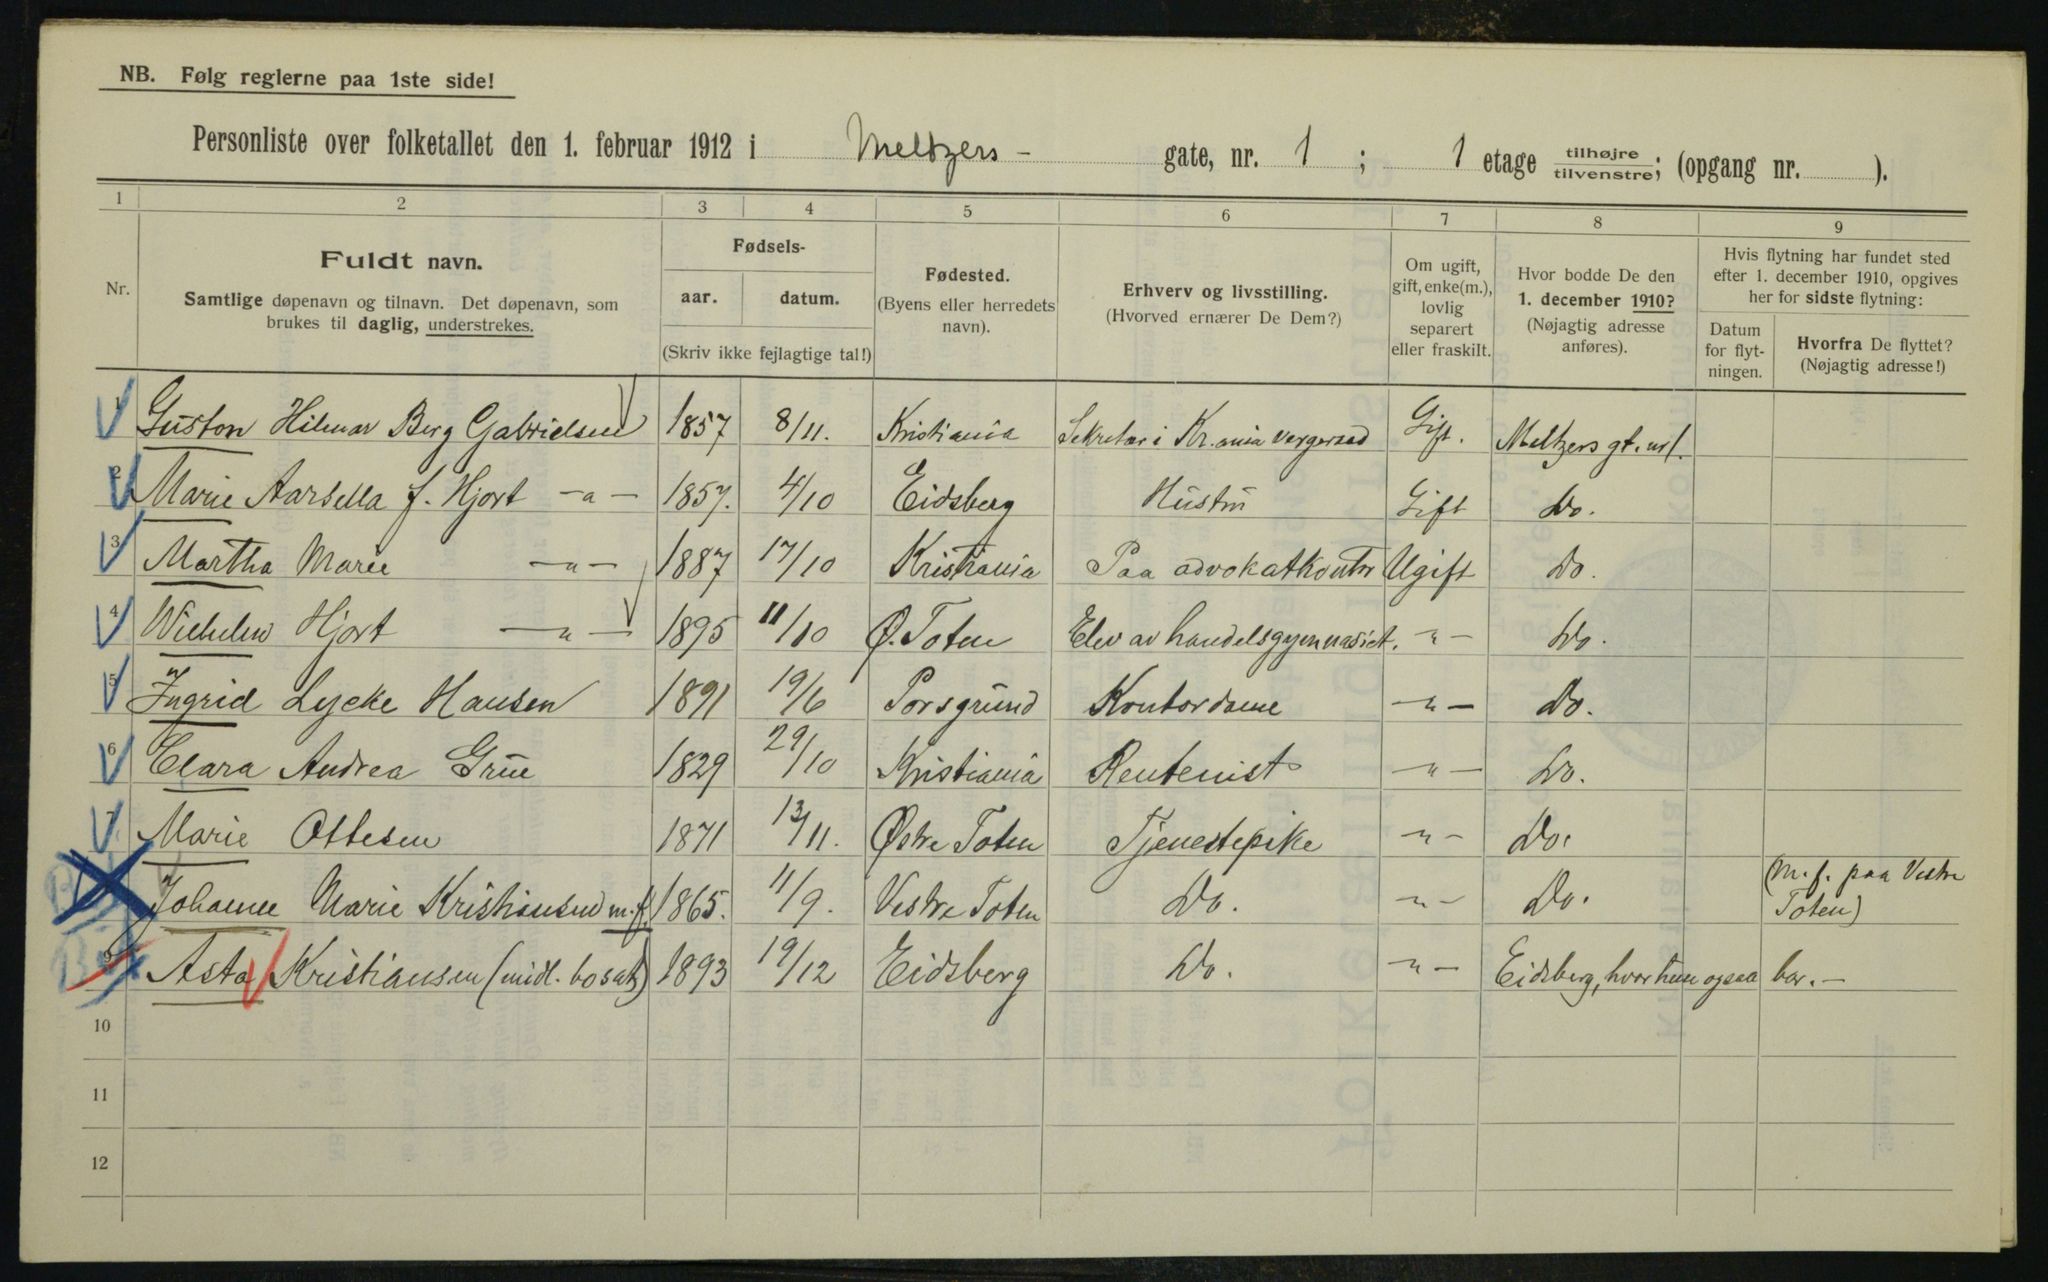 NB. Følg reglerne paa 1ste side!
Personliste over folketallet den 1. februar 1912 i Meltzers - gate, nr. 1 ; 1 etage tilhøjre / tilvenstre; (opgang nr. ).
1 2 3 4 5 6 7 8 9
Nr.
Fuldt navn.
Samtlige døpenavn og tilnavn. Det døpenavn, som
brukes til daglig, understrekes.
Fødsels-
aar. datum.
(Skriv ikke fejlagtige tal!)
Fødested.
(Byens eller herredets
navn).
Erhverv og livsstilling.
(Hvorved ernærer De Dem?)
Om ugift,
gift, enke(m.),
lovlig
separert
eller fraskilt.
Hvor bodde De den
1. december 1910?
(Nøjagtig adresse
anføres).
Hvis flytning har fundet sted
efter 1. december 1910, opgives
her for sidste flytning:
Datum
for flyt-
ningen.
Hvorfra De flyttet?
(Nøjagtig adresse!)
1 Guston Hilmar Berg Gabrielsen 1857 8/11. Kristiania Sekretær i Kr.ania vergeraad Gift. Meltzers gt. nr 1.
2 Marie Aarsella f. Hjort -"- 1857. 4/10 Eidsberg Hustru Gift Do.
3 Martha Marie -"- 1887 17/10 Kristiania Paa advokatkontor Ugift Do.
4 Wilhelm Hjort -"- 1895 11/10 Ø. Toten Elev av handelsgymnasiet. -"- Do.
5 Ingrid Lycke Hansen 1891 19/6 Porsgrund Kontordame -"- Do.
6 Clara Andrea Grüe 1829 29/10 Kristiania Rentenist -"- Do.
7 Marie Ottesen 1871 13/11. Østre Toten Tjenestepike -"- Do.
Johanne Marie Kristiansen m.f. 1865. 11/9. Vestre Toten Do. -"- Do. (m.f. paa Vestre
Toten)
9 Asta Kristiansen (midl. bosat) 1893 19/12 Eidsberg Do. -"- Eidsberg, hvor hun ogsaa bor. -
10
11
12